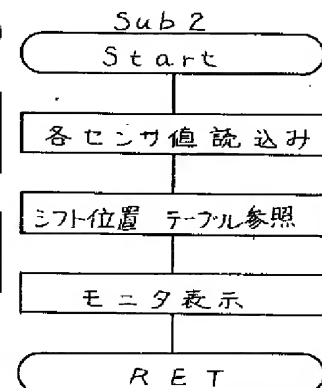 Sub2
Start
各センサ値読込み
シフト位置 テーブル参照
モニタ表示
RET